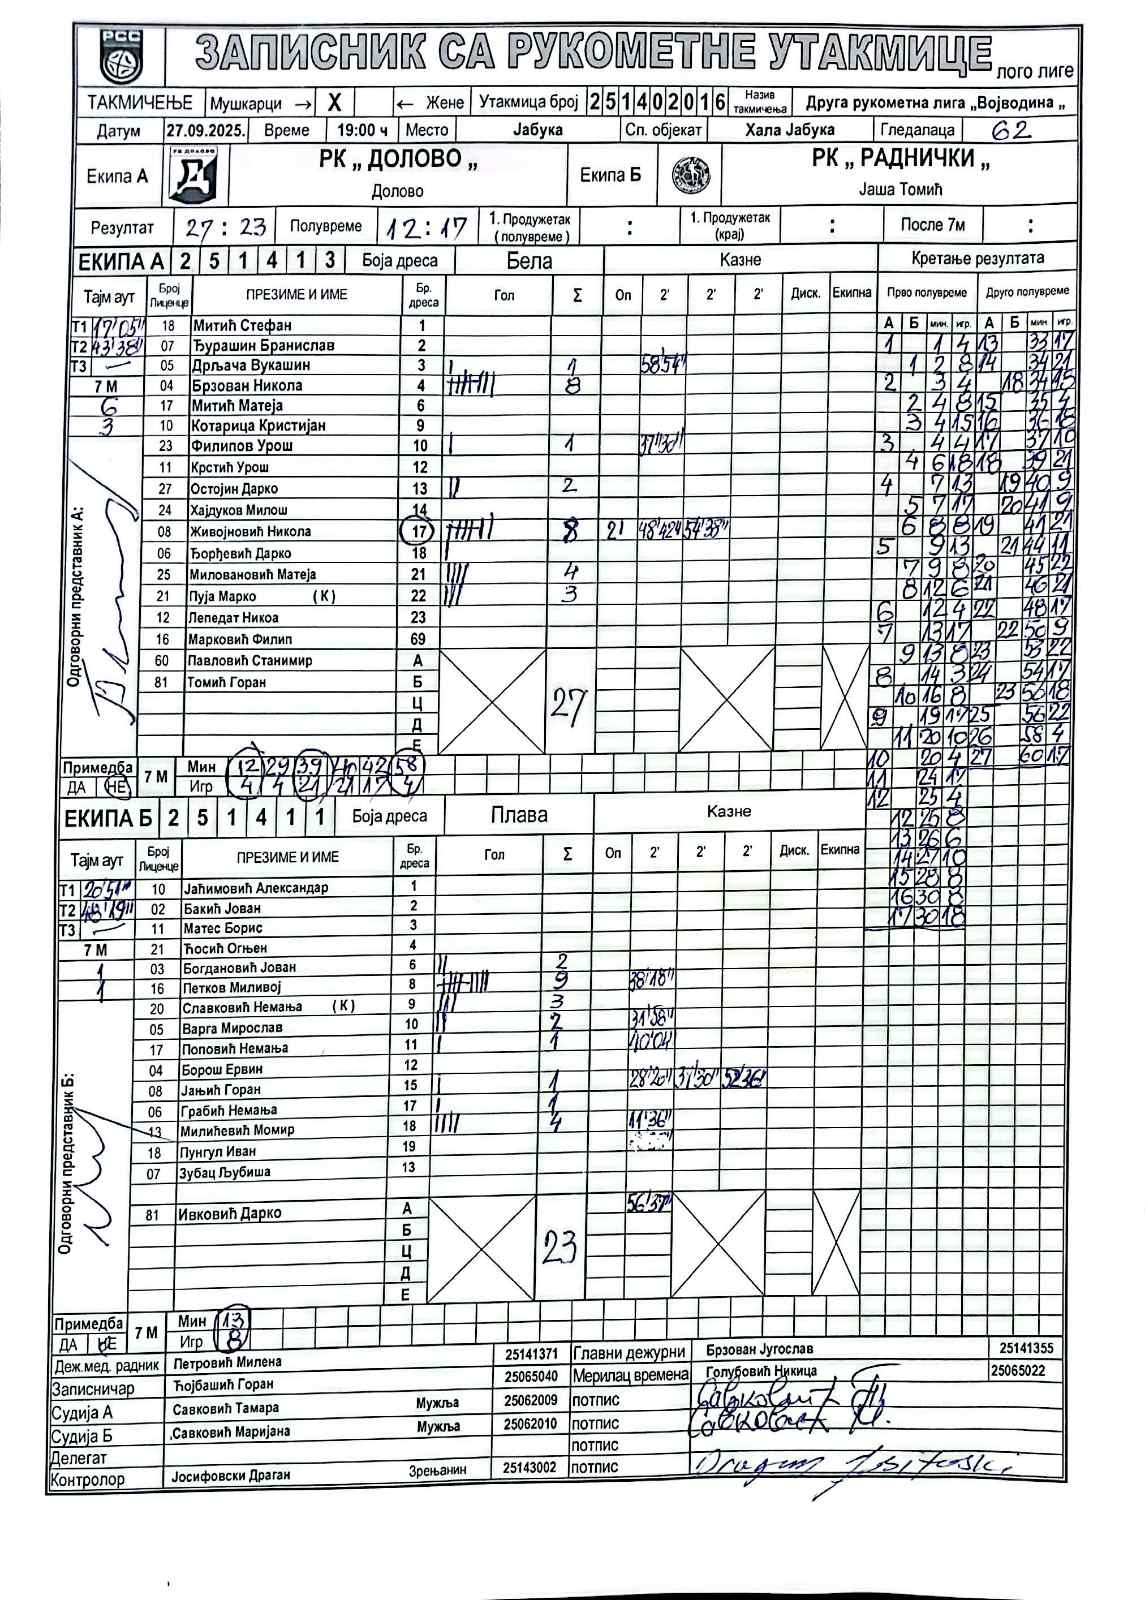 РСС ЗАПИСНИК СА РУКОМЕТНЕ УТАКМИЦЕ лого лиге
ТАКМИЧЕЊЕ Мушкарци → X ← Жене Утакмица број 2 5 1 4 0 2 0 1 6 Назив такмичења Друга рукометна лига „Војводина „
Датум 27.09.2025. Време 19:00 ч Место Јабука Сп. објекат Хала Јабука Гледалаца 62
Екипа А РК „ ДОЛОВО „ Долово Екипа Б РК „ РАДНИЧКИ „ Јаша Томић
Резултат 27 : 23 Полувреме 12 : 17 1. Продужетак ( полувреме ) : 1. Продужетак (крај) : После 7м :
ЕКИПА А 2 5 1 4 1 3 Боја дреса Бела Казне Кретање резултата
Тајм аут Број Лиценце ПРЕЗИМЕ И ИМЕ Бр. дреса Гол Σ Оп 2' 2' 2' Диск. Екипна Прво полувреме Друго полувреме
А Б мин. игр. А Б мин игр.
Т1 17'05" 18 Митић Стефан 1
Т2 43'38" 07 Ђурашин Бранислав 2
Т3 — 05 Дрљача Вукашин 3 I 1 58'54"
7 М 04 Брзован Никола 4 8
6 17 Митић Матеја 6
3 10 Котарица Кристијан 9
23 Филипов Урош 10 I 1 37'30"
11 Крстић Урош 12
27 Остојин Дарко 13 II 2
24 Хајдуков Милош 14
08 Живојновић Никола 17 8 21 48'42" 54'38"
06 Ђорђевић Дарко 18 I
25 Миловановић Матеја 21 IIII 4
21 Пуја Марко ( К ) 22 III 3
12 Лепедат Никоа 23
16 Марковић Филип 69
60 Павловић Станимир А
81 Томић Горан Б
Ц
Д
Е
27
Одговорни представник А:
1 1 4 13 33 17
1 2 8 14 34 21
2 3 4 18 34 15
2 4 8 15 35 4
3 4 15 16 36 18
3 4 4 17 37 10
4 6 18 18 39 21
4 7 13 19 40 9
5 7 17 20 41 9
6 8 8 19 41 21
5 9 13 21 44 11
7 9 8 20 45 22
8 12 6 21 46 21
6 12 4 22 48 17
7 13 17 22 50 9
9 13 8 23 53 22
8 14 3 24 54 17
10 16 8 23 56 18
9 19 17 25 56 22
11 20 10 26 58 4
10 20 4 27 60 17
11 24 17
12 25 4
12 25 8
13 26 6
14 27 10
15 28 8
16 30 8
17 30 18
Примедба 7 М Мин 12 29 39 40 42 58
ДА НЕ Игр 4 4 21 21 17 4
ЕКИПА Б 2 5 1 4 1 1 Боја дреса Плава Казне
Тајм аут Број Лиценце ПРЕЗИМЕ И ИМЕ Бр. дреса Гол Σ Оп 2' 2' 2' Диск. Екипна
Т1 20'51" 10 Јаћимовић Александар 1
Т2 48'19" 02 Бакић Јован 2
Т3 — 11 Матес Борис 3
7 М 21 Ћосић Огњен 4
1 03 Богдановић Јован 6 II 2
1 16 Петков Миливој 8 9 38'18"
20 Славковић Немања ( К ) 9 III 3
05 Варга Мирослав 10 II 2 31'58"
17 Поповић Немања 11 I 1 40'04"
04 Борош Ервин 12
08 Јањић Горан 15 I 1 28'20" 37'30" 52'36"
06 Грабић Немања 17 I 1
13 Милићевић Момир 18 IIII 4 11'36"
18 Пунгул Иван 19
07 Зубац Љубиша 13
81 Ивковић Дарко А 56'37"
Б
Ц
Д
Е
23
Одговорни представник Б:
Примедба 7 М Мин 13
ДА НЕ Игр 8
Деж.мед. радник Петровић Милена 25141371 Главни дежурни Брзован Југослав 25141355
Записничар Ћојбашић Горан 25065040 Мерилац времена Голубовић Никица 25065022
Судија А Савковић Тамара Мужља 25062009 потпис Савковић Т.
Судија Б .Савковић Маријана Мужља 25062010 потпис Савковић М.
Делегат потпис
Контролор Јосифовски Драган Зрењанин 25143002 потпис Dragan Josifoski